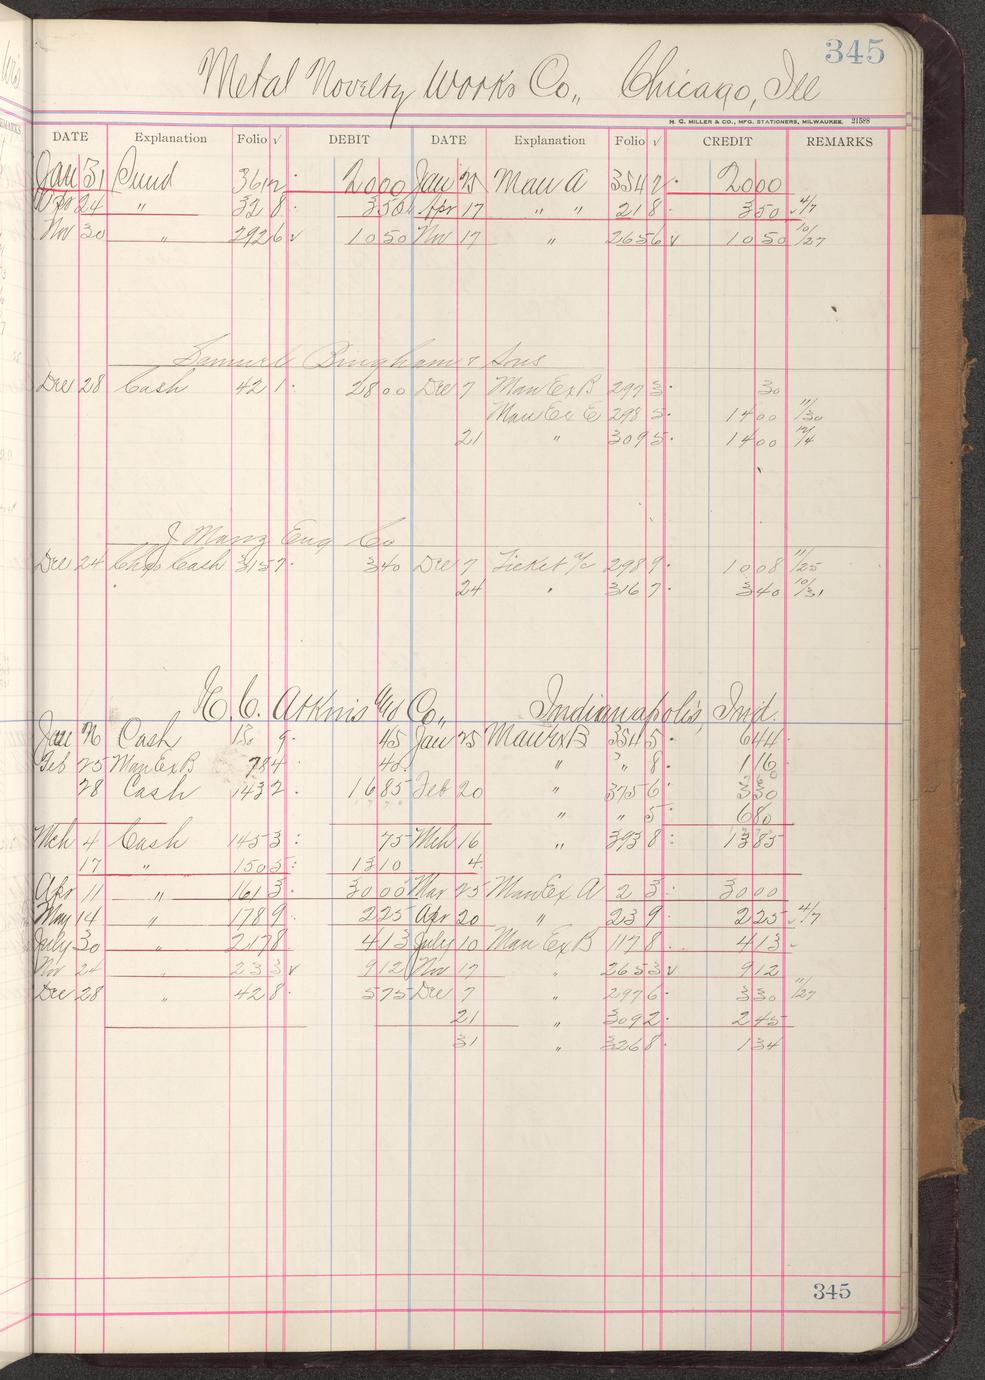 345
Metal Novelty Works Co., Chicago, Ill
H. C. MILLER & CO., MFG. STATIONERS, MILWAUKEE. 21588
DATE Explanation Folio √ DEBIT DATE Explanation Folio √ CREDIT REMARKS
Jan 31 Sund 3612 2000 Jan 25 Man A 3542 2000
Apr 24 " 328 350 Apr 17 " " 218 350 4/7
Nov 30 " 2926 √ 1050 Nov 17 " 2656 √ 1050 10/27
Samuel Bingham & Sons
Dec 28 Cash 421 2800 Dec 7 Man Ex B 2973 30
Man Ex E 2985 1400 11/30
21 " 3095 1400 12/4
J Manz Eng Co
Dec 24 Cash 3157 340 Dec 7 Ticket a/c 2989 1008 11/25
24 " 3167 340 10/31
E. C. Atkins and Co., Indianapolis, Ind.
Jan Cash 9 45 Jan 25 Man Ex B 3545 644
Feb 25 Man Ex B 784 40 " " " 8 116
28 Cash 1432 1685 Feb 20 " 3756 330
" " 5 680
Mch 4 Cash 1453 75 Mch 16 " 3938 1385
17 " 1505 1310 4
Apr 11 " 1613 3000 Mar 25 Man Ex A 23 3000
May 14 " 1789 225 Apr 20 " 239 225 4/7
July 30 " 2178 413 July 10 Man Ex B 1178 413
Nov 24 " 233 √ 912 Nov 17 " 2653 √ 912
Dec 28 " 428 575 Dec 7 " 2976 330 11/27
21 " 3092 245
31 " 3268 134
345